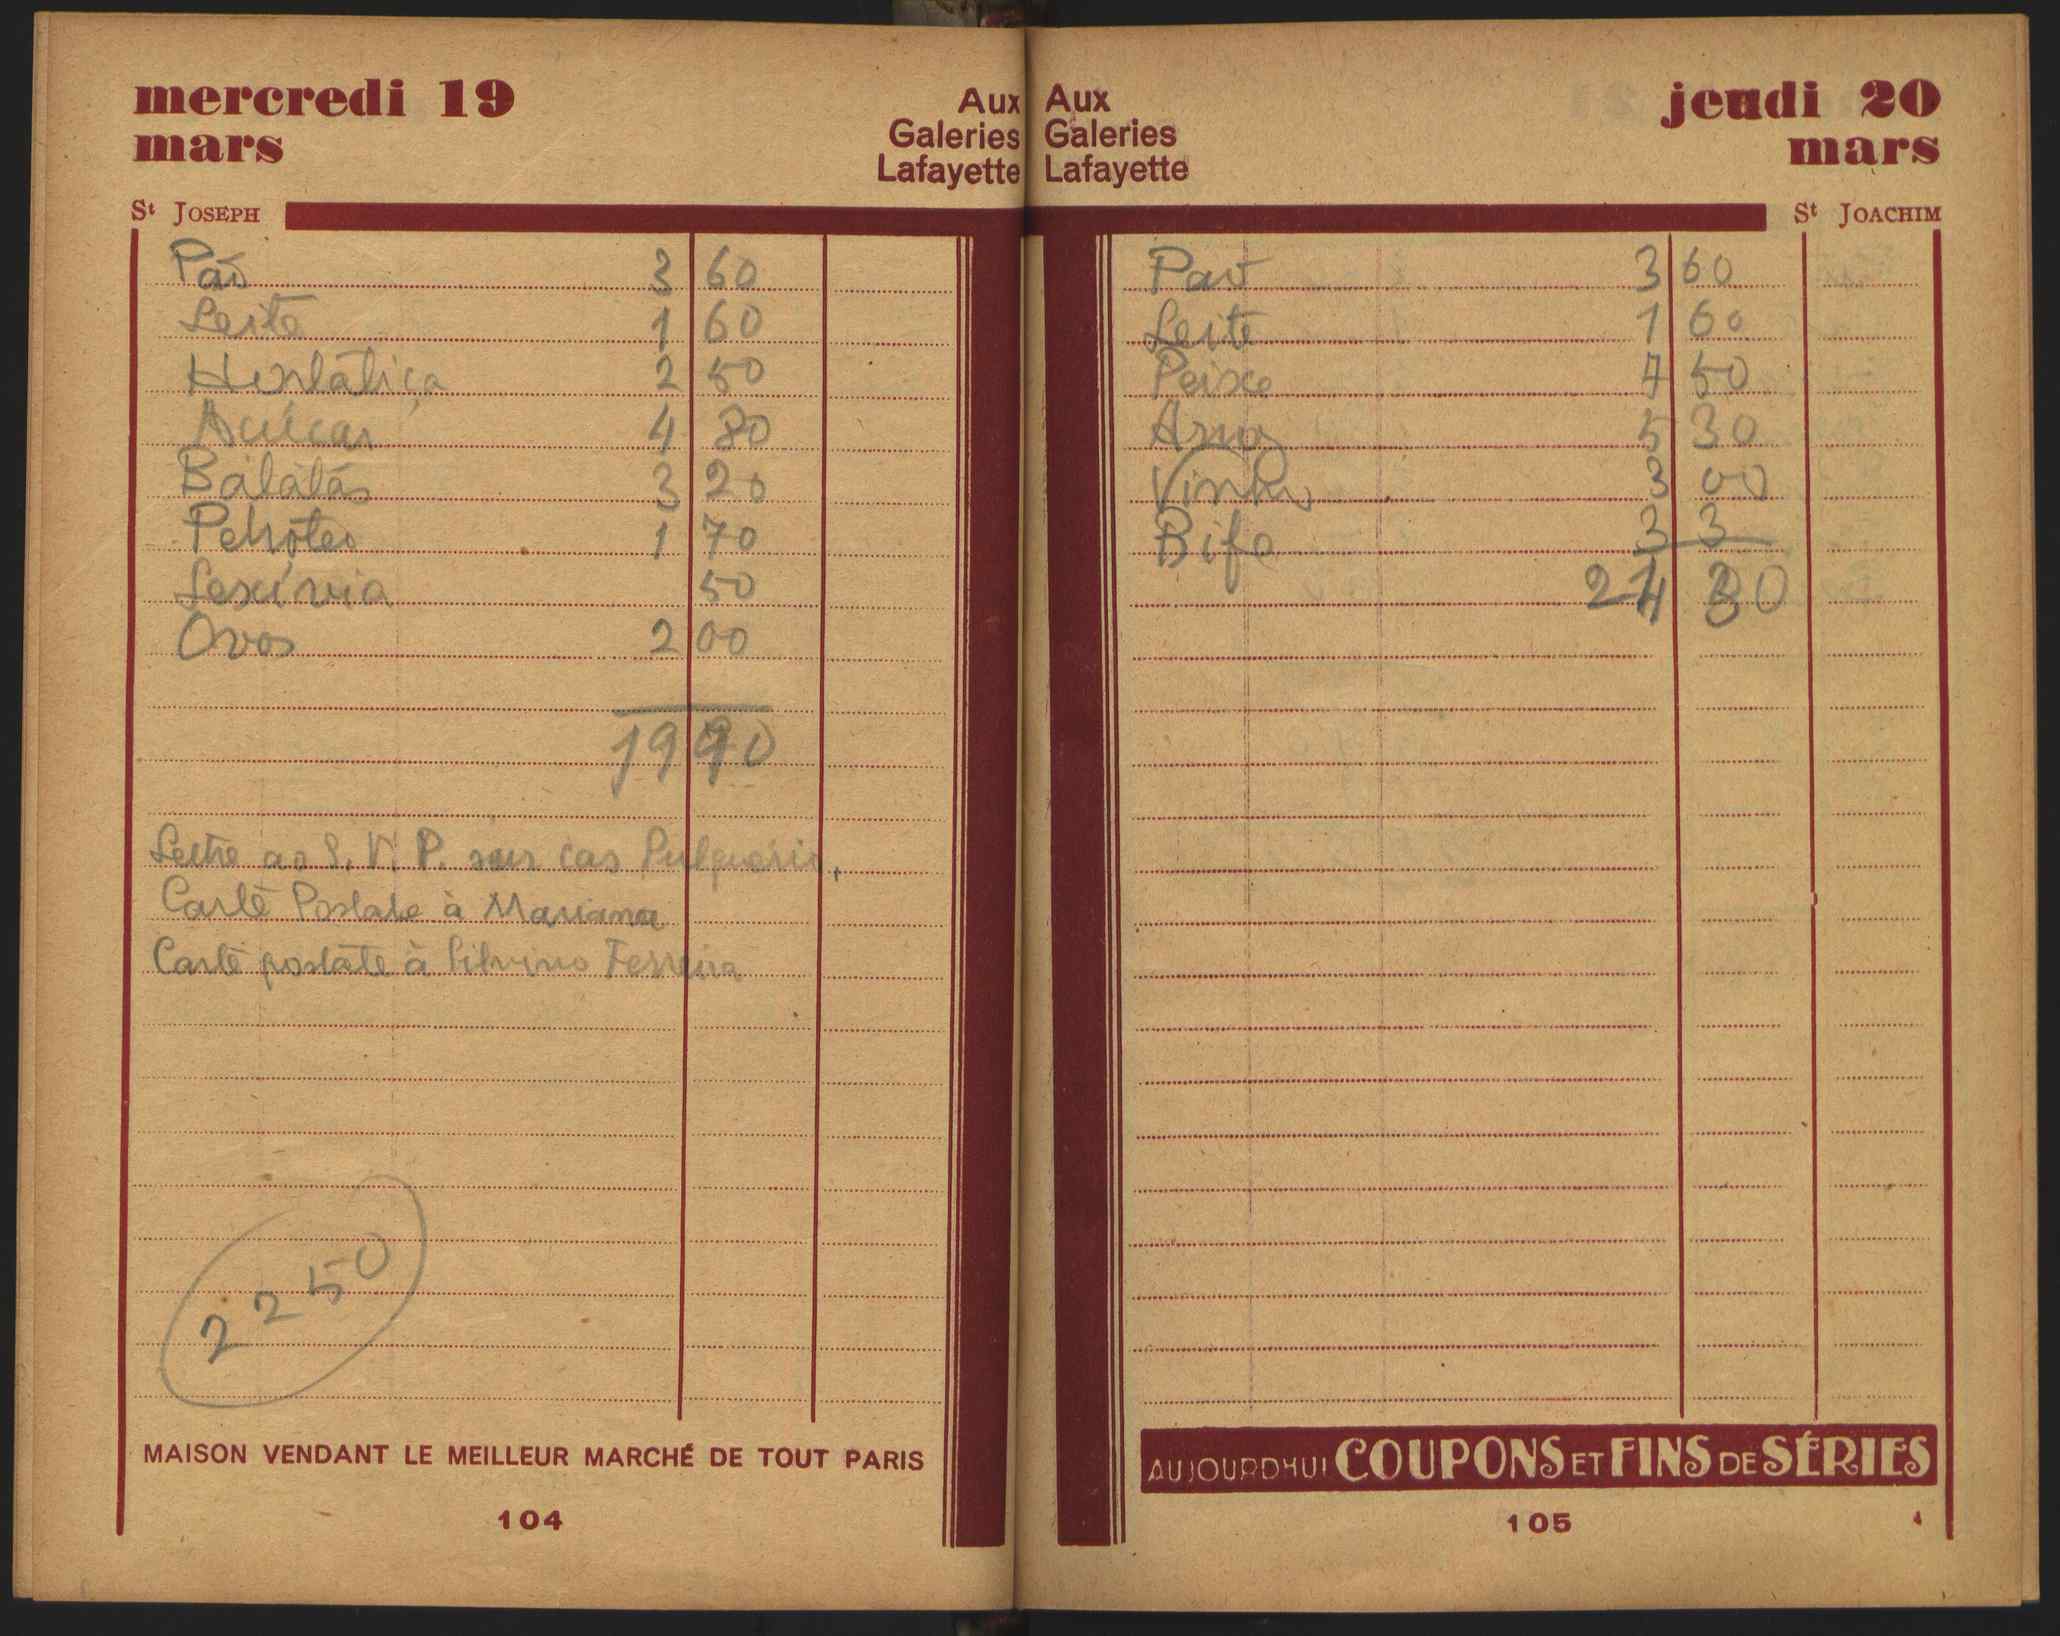 mercredi 19
mars
Aux
Galeries
Lafayette
St JOSEPH
Pão 3 60
Leite 1 60
Hortaliça 2 50
Açúcar 4 80
Batatas 3 20
Petróleo 1 70
Lexívia 50
Ovos 2 00
19 90
Lettre au S. V. P. sur cas Pulquério,
Carte Postale à Mariana
Carte postale à Silvino Ferreira
2250
MAISON VENDANT LE MEILLEUR MARCHÉ DE TOUT PARIS
104
Aux
Galeries
Lafayette
jeudi 20
mars
St JOACHIM
Pão 3 60
Leite 1 60
Peixe 7 50
Arroz 5 30
Vinho 3 00
Bife 3 3
24 30
AUJOURD'HUI COUPONS ET FINS DE SÉRIES
105